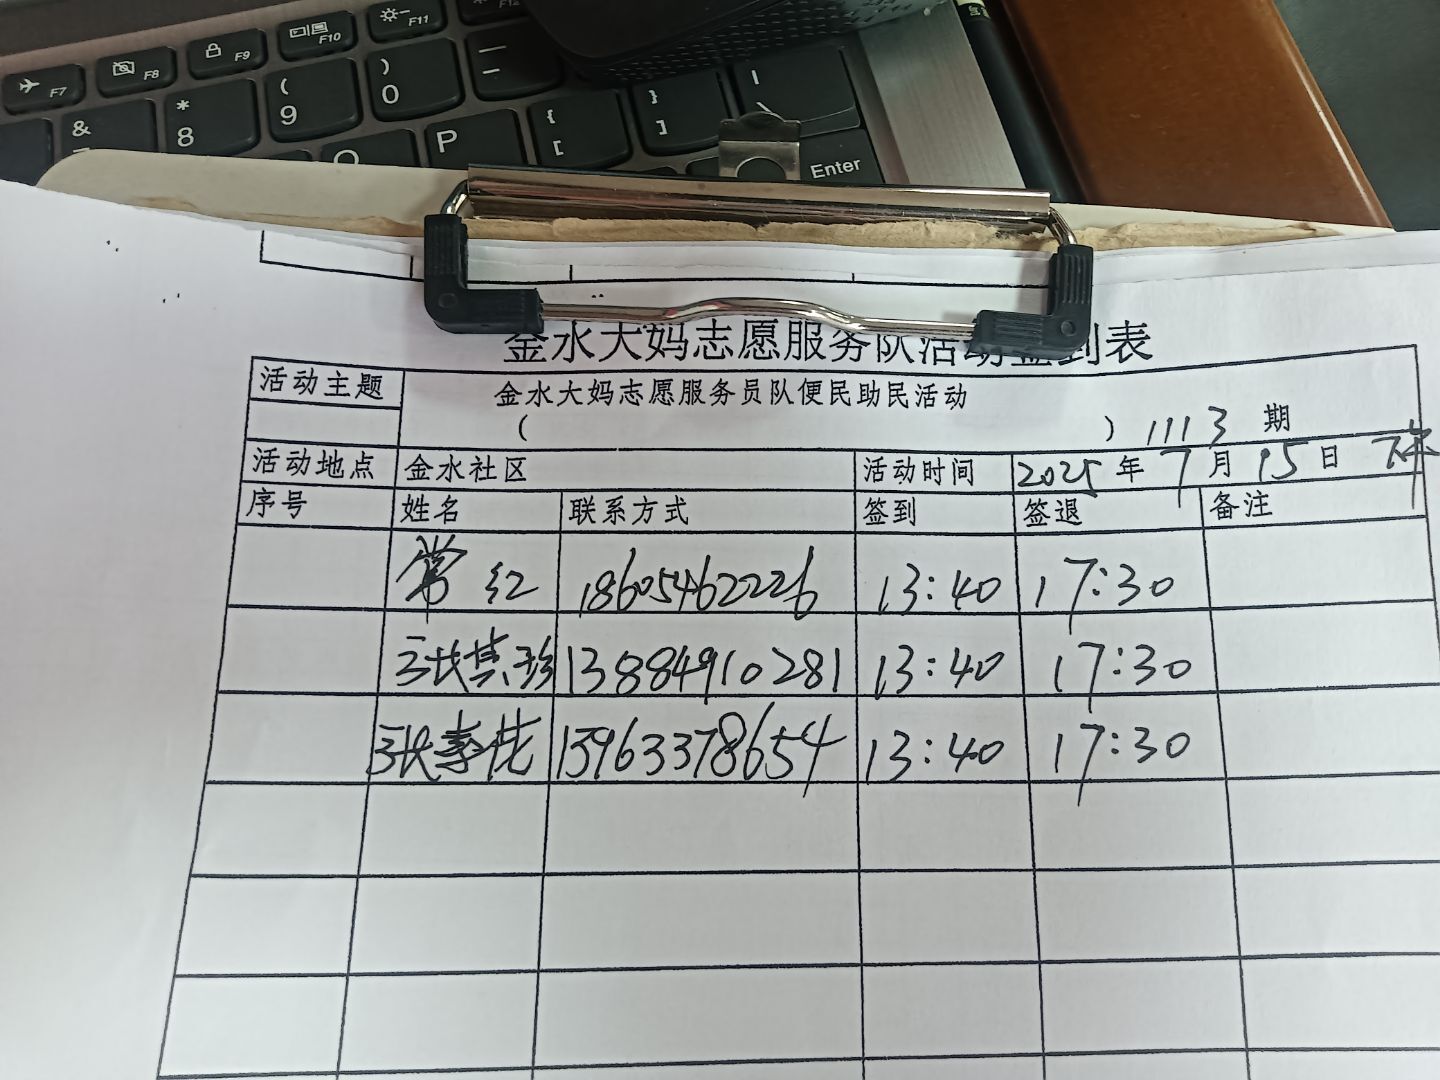 F7 F8 F9 F10 F11 F12
& * 8 ( 9 ) 0
P { [ } ] | \
Enter
金水大妈志愿服务队活动签到表
活动主题 金水大妈志愿服务员队便民助民活动
( ) 1113 期
活动地点 金水社区 活动时间 2025年7月15日 下午
序号 姓名 联系方式 签到 签退 备注
常红 18605462226 13:40 17:30
张其珍 13884910281 13:40 17:30
张素花 13963378654 13:40 17:30